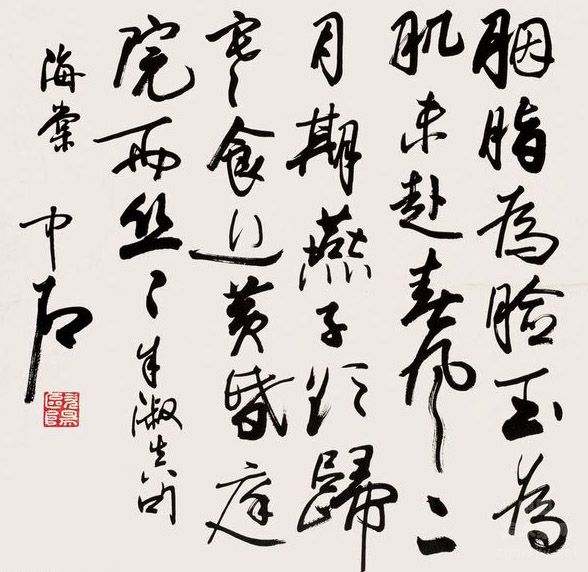 胭脂為臉玉為
肌未赴春風二
月期燕子欲歸
寒食近黃昏庭
院雨絲〻朱淑真
海棠
中石